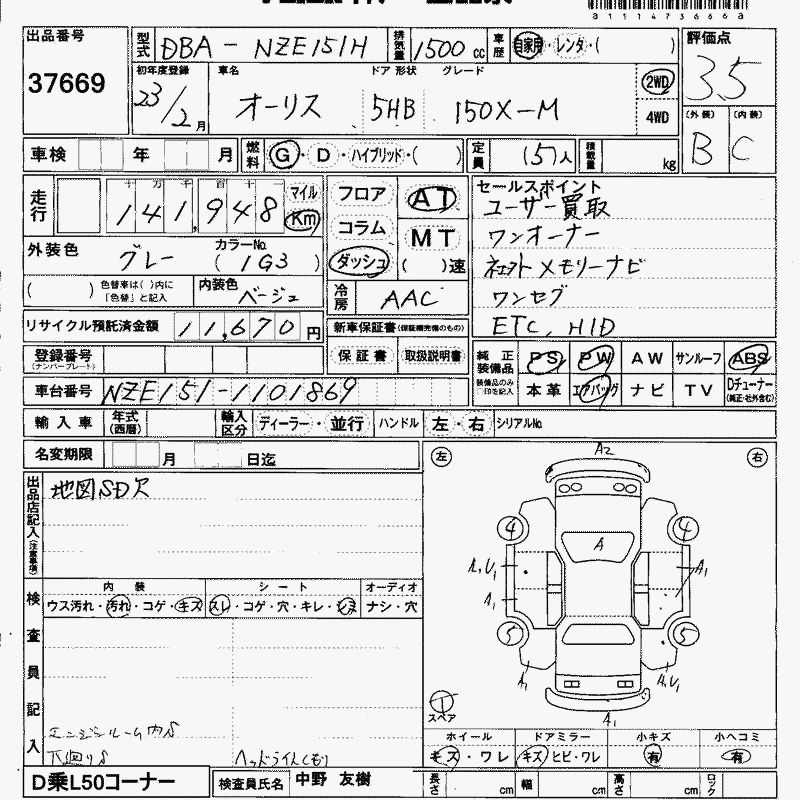 a1114736666a
出品番号
37669
型式 DBA - NZE151H
排気量 1500 cc
車歴 自家用・レンタ・( )
評価点
3.5
初年度登録
23/2月
車名
オーリス
ドア 形状
5HB
グレード
150X-M
2WD
4WD
(外装) B
(内装) C
車検 年 月
燃料 G・D・ハイブリッド・( )
定員 (5)人
積載量 kg
走行
十 万 千 百 十
141,948
マイル
Km
フロア
コラム
ダッシュ
AT
MT
( )速
セールスポイント
ユーザー買取
ワンオーナー
ネェクスト メモリーナビ
ワンセグ
ETC, HID
外装色
グレー
カラーNo.
( 1G3 )
( )
色替車は( )内に
「色替」と記入
内装色
ベージュ
冷房 AAC
リサイクル預託済金額 11,670 円
新車保証書(保証継続のもの)
保証書 取扱説明書
登録番号
(ナンバープレート)
車台番号 NZE151-1101869
純正装備品
装備品のみ○印を記入
PS PW AW サンルーフ ABS
本革 エアバッグ ナビ TV Dチューナー
(純正・社外含む)
輸入車 年式(西暦) 輸入区分 ディーラー・並行 ハンドル 左・右 シリアルNo.
名変期限 月 日迄
出品店記入(注意事項)
地図SD欠
検査員記入
内装
ウス汚れ・汚れ・コゲ・キズ
シート
スレ・コゲ・穴・キレ・シミ
オーディオ
ナシ・穴
エンジンルーム内S
下廻りS
ヘッドライトくもり
左
右
A2
4
4
A
A,U1
A1
A1
5
5
A1
A,U1
A1
T
スペア
ホイール
キズ・ワレ
ドアミラー
キズ ヒビ・ワレ
小キズ
有
小ヘコミ
有
D乗L50コーナー
検査員氏名 中野 友樹
長さ cm 幅 cm 高さ cm ロック